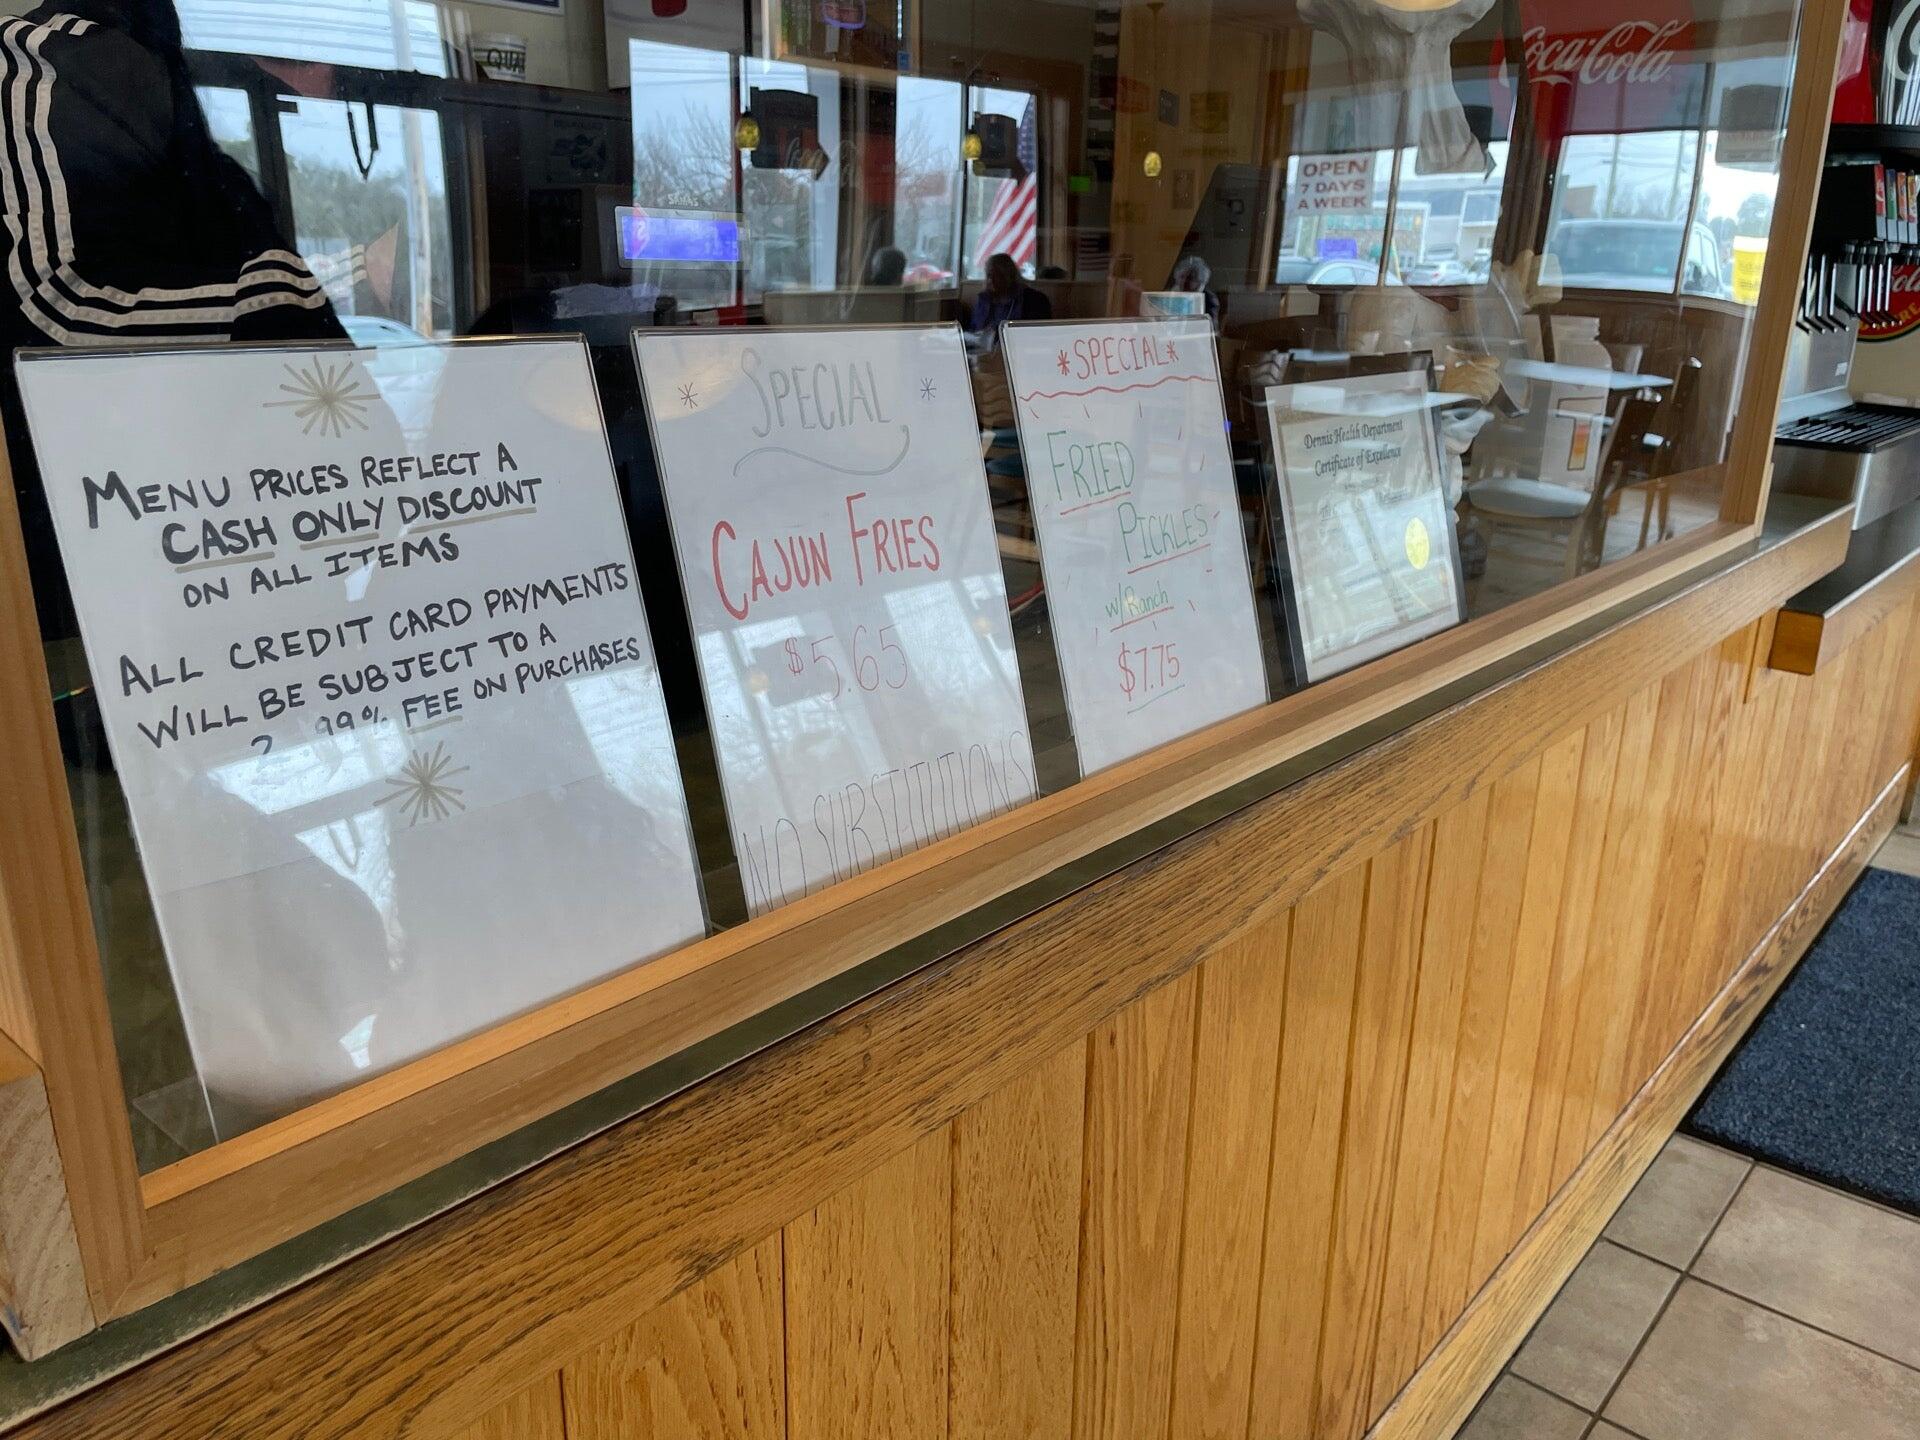 MENU PRICES REFLECT A
CASH ONLY DISCOUNT
ON ALL ITEMS
ALL CREDIT CARD PAYMENTS
WILL BE SUBJECT TO A
2.99% FEE ON PURCHASES
* SPECIAL *
CAJUN FRIES
$5.65
NO SUBSTITUTIONS
*SPECIAL*
FRIED
PICKLES
w/ Ranch
$7.75
Dennis Health Department
Certificate of Excellence
OPEN
7 DAYS
A WEEK
Coca-Cola